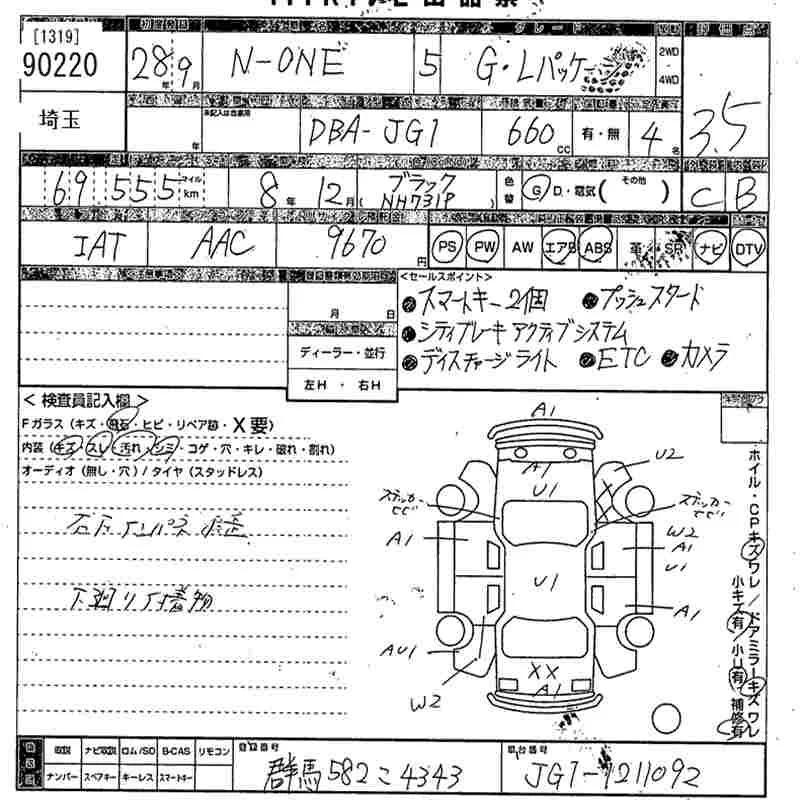 [1319]
90220
28 9月 N-ONE 5 G・Lパッケー 2WD・4WD
埼玉
年 DBA-JG1 660cc 有・無 4名 3.5
69,555 マイル km 8年12月 (ブラック NH731P) 色替 G D・電気( その他 ) C B
IAT AAC 9670円 PS PW AW エアB ABS 革 SR ナビ DTV
<セールスポイント>
月 日
●スマートキー2個 ●プッシュスタート
●シティブレーキアクティブシステム
ディーラー・並行
●ディスチャージライト ●ETC ●カメラ
左H・右H
<検査員記入欄>
Fガラス(キズ・飛石・ヒビ・リペア跡・X要)
内装(キズ・スレ・汚れ・シミ・コゲ・穴・キレ・破れ・割れ)
オーディオ(無し・穴)/タイヤ(スタッドレス)
下廻り付着物
A1
A1
U1
U2
ステッカー
ステッカー
A1
W2
A1
U1
U1
A1
AU1
W2
XX
A1
ホイル・CPキズワレ/ドアミラーキズワレ
小キズ有/小U有/補修有
取説 ナビ取説 ロム/SD B-CAS リモコン
ナンバー スペアキー キーレス スマートキー
登録番号
群馬582こ4343
車台番号
JG1-1211092